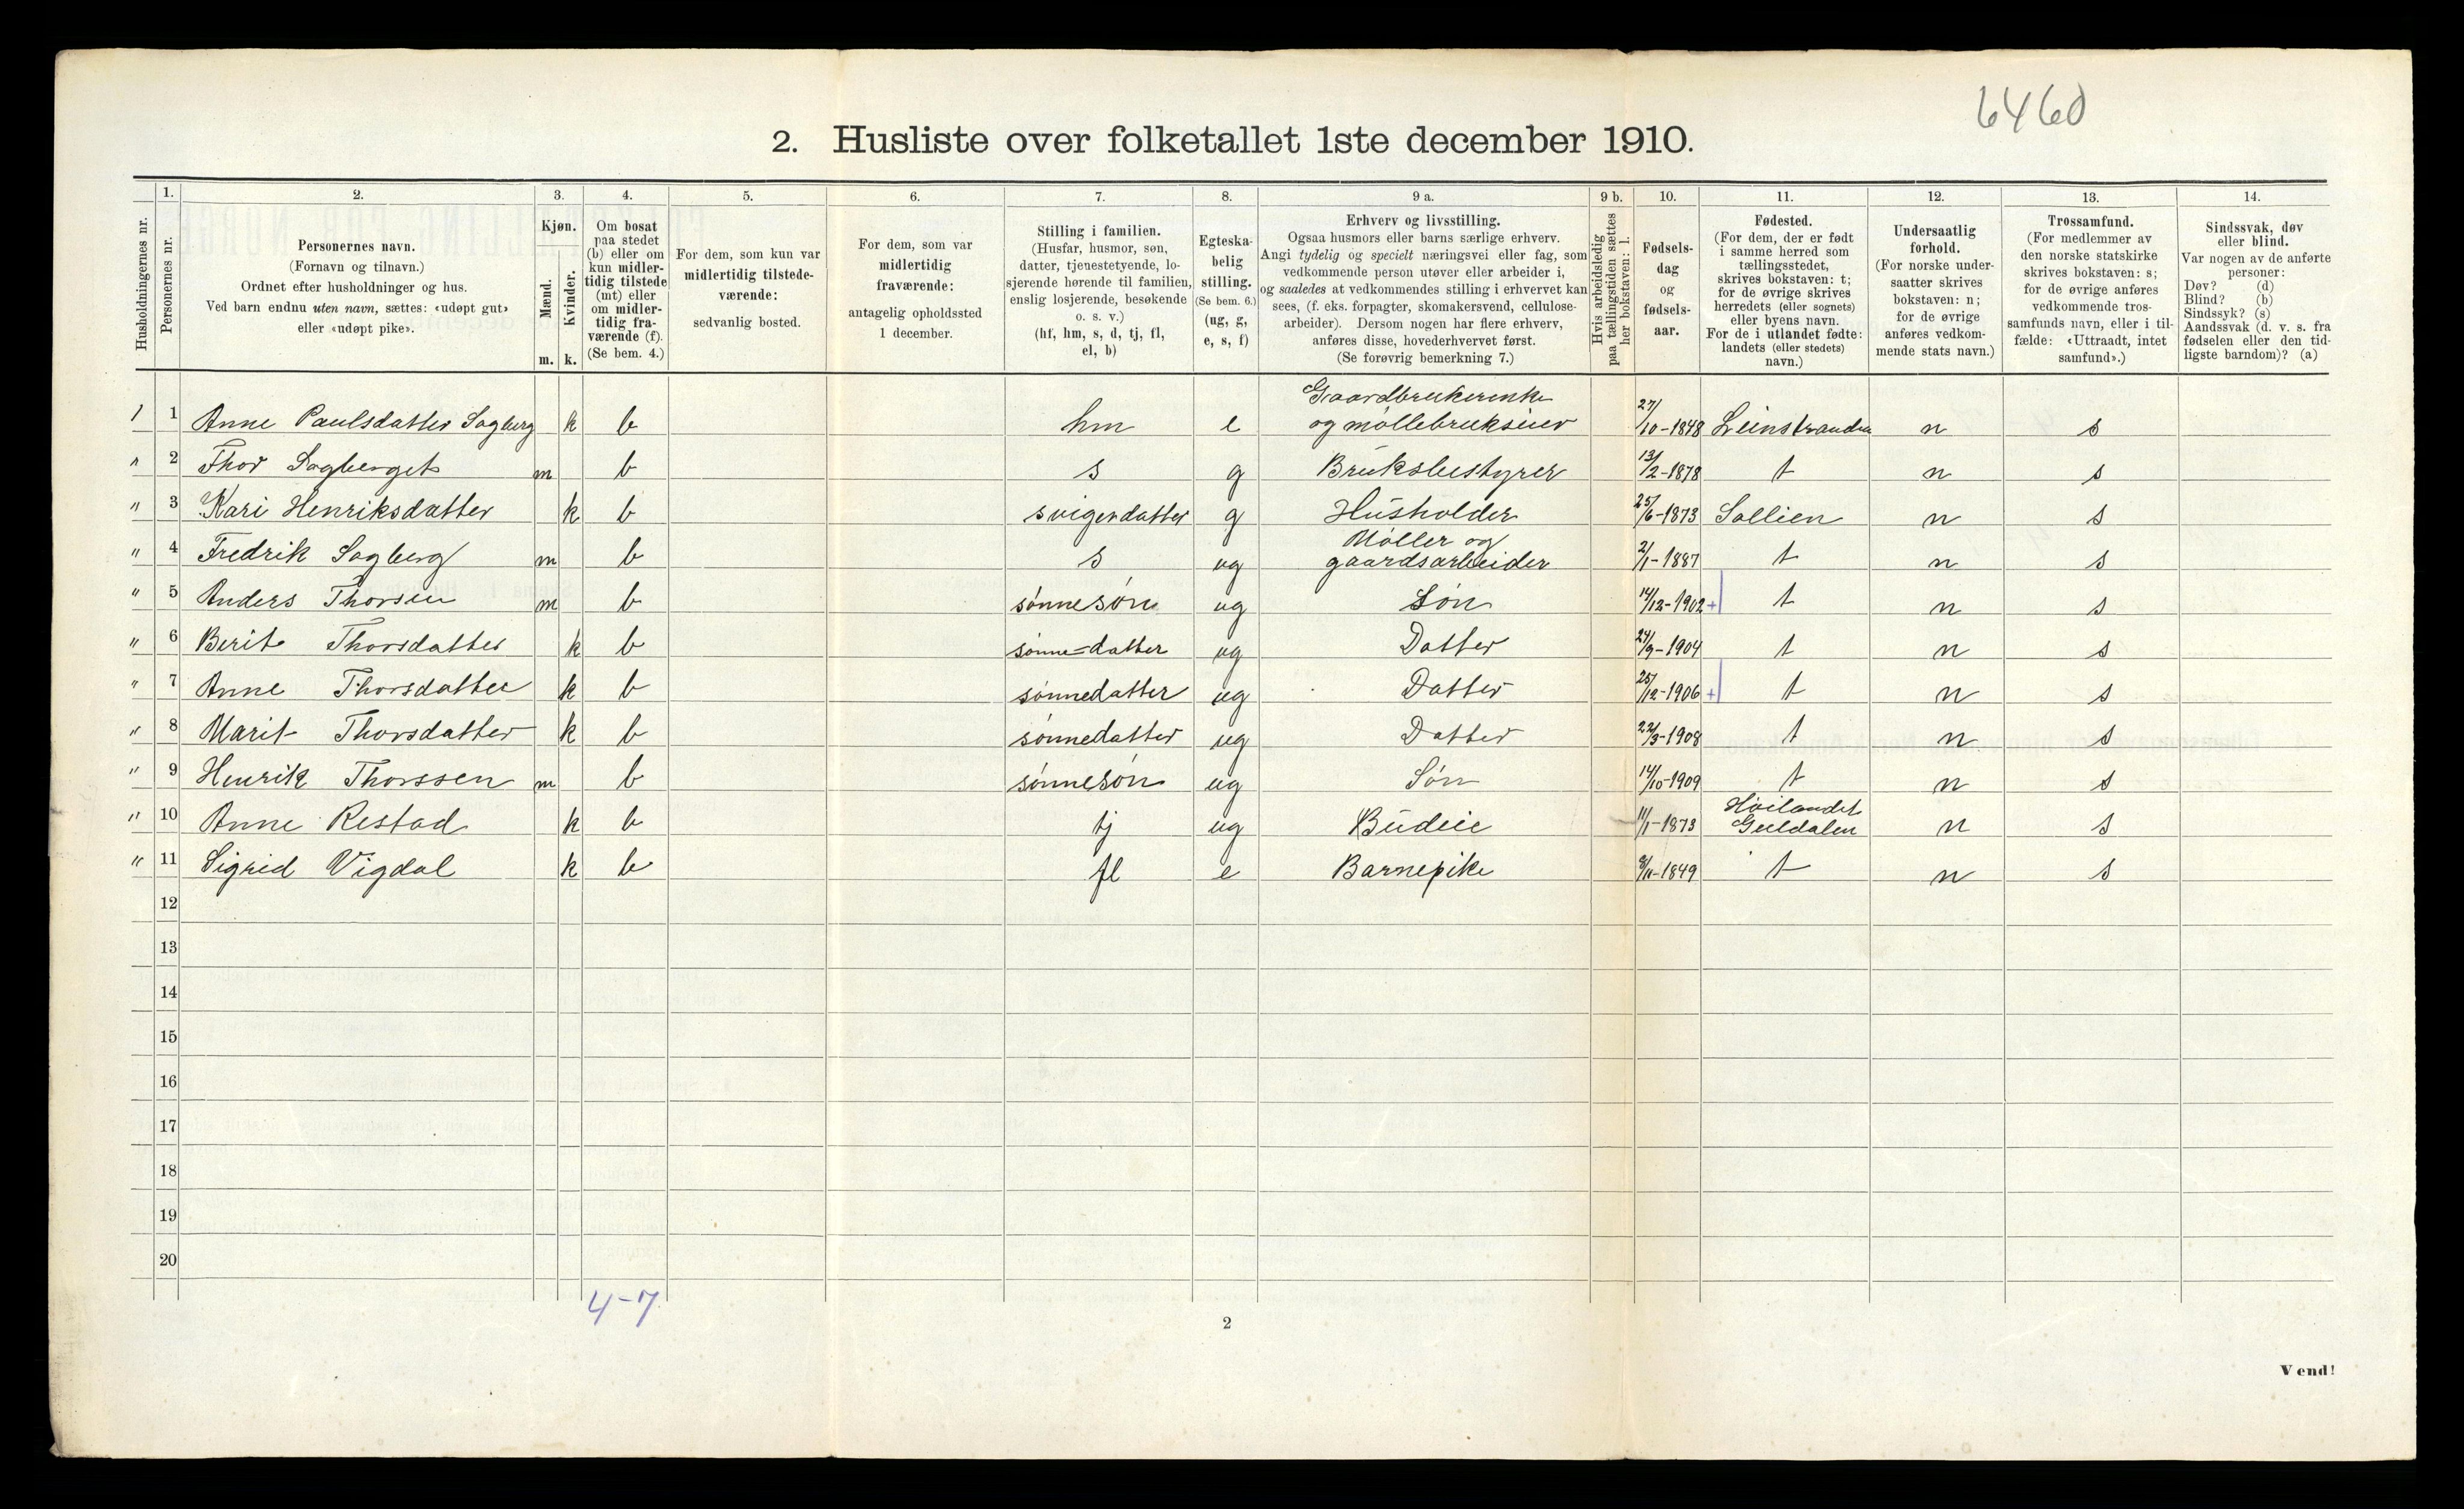 6460
2. Husliste over folketallet 1ste december 1910.
Husholdningernes nr.
1.
Personernes nr.
2.
Personernes navn.
(Fornavn og tilnavn.)
Ordnet efter husholdninger og hus.
Ved barn endnu uten navn, sættes: «udøpt gut»
eller «udøpt pike».
3.
Kjøn.
Mænd.
Kvinder.
m. k.
4.
Om bosat
paa stedet
(b) eller om
kun midler-
tidig tilstede
(mt) eller
om midler-
tidig fra-
værende (f).
(Se bem. 4.)
5.
For dem, som kun var
midlertidig tilstede-
værende:
sedvanlig bosted.
6.
For dem, som var
midlertidig
fraværende:
antagelig opholdssted
1 december.
7.
Stilling i familien.
(Husfar, husmor, søn,
datter, tjenestetyende, lo-
sjerende hørende til familien,
enslig losjerende, besøkende
o. s. v.)
(hf, hm, s, d, tj, fl,
el, b)
8.
Egteska-
belig
stilling.
(Se bem. 6.)
(ug, g,
e, s, f)
9 a.
Erhverv og livsstilling.
Ogsaa husmors eller barns særlige erhverv.
Angi tydelig og specielt næringsvei eller fag, som
vedkommende person utøver eller arbeider i,
og saaledes at vedkommendes stilling i erhvervet kan
sees, (f. eks. forpagter, skomakersvend, cellulose-
arbeider). Dersom nogen har flere erhverv,
anføres disse, hovederhvervet først.
(Se forøvrig bemerkning 7.)
9 b.
Hvis arbeidsledig
paa tællingstiden sættes
her bokstaven: l.
10.
Fødsels-
dag
og
fødsels-
aar.
11.
Fødested.
(For dem, der er født
i samme herred som
tællingsstedet,
skrives bokstaven: t;
for de øvrige skrives
herredets (eller sognets)
eller byens navn.
For de i utlandet fødte:
landets (eller stedets)
navn.)
12.
Undersaatlig
forhold.
(For norske under-
saatter skrives
bokstaven: n;
for de øvrige
anføres vedkom-
mende stats navn.)
13.
Trossamfund.
(For medlemmer av
den norske statskirke
skrives bokstaven: s;
for de øvrige anføres
vedkommende tros-
samfunds navn, eller i til-
fælde: «Uttraadt, intet
samfund».)
14.
Sindssvak, døv
eller blind.
Var nogen av de anførte
personer:
Døv? (d)
Blind? (b)
Sindssyk? (s)
Aandssvak (d. v. s. fra
fødselen eller den tid-
ligste barndom)? (a)
1 1 Anne Paulsdatter Sagberg k b hm e Gaardbrukerenke og møllebrukseier 27/10-1848 Leinstranden n s
" 2 Thor Sagberget m b s g Bruksbestyrer 13/2-1878 t n s
" 3 Kari Henriksdatter k b svigerdatter g Husholder 25/6-1873 Sollien n s
" 4 Fredrik Sagberg m b s ug Møller og gaardsarbeider 2/1-1887 t n s
" 5 Anders Thorsen m b sønnesøn ug Søn 14/12-1902 + t n s
" 6 Berit Thorsdatter k b sønne=datter ug Datter 24/9-1904 t n s
" 7 Anne Thorsdatter k b sønnedatter ug Datter 25/12-1906 + t n s
" 8 Marit Thorsdatter k b sønnedatter ug Datter 22/3-1908 t n s
" 9 Henrik Thorssen m b sønnesøn ug Søn 14/10-1909 t n s
" 10 Anne Restad k b tj ug Budeie 11/1-1873 Høilandet Guldalen n s
" 11 Sigrid Vigdal k b fl e Barnepike 9/11-1849 t n s
12
13
14
15
16
17
18
19
20
4-7
2
Vend!